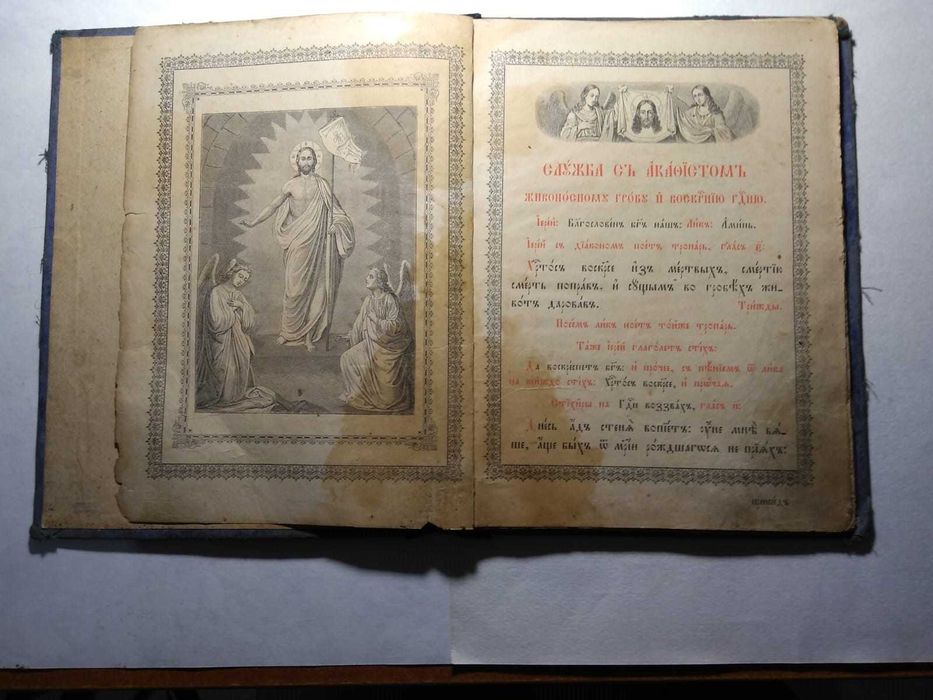 СЛꙊ́ЖБА СЪ А҆КА́ѲІСТОМЪ
ЖИВОНО́СНОМУ ГРО́БУ И҆ ВОСКР҃НІЮ ГДⷭ҇НЮ.
І҆ере́й: Бл҃гослове́нъ бг҃ъ на́шъ: Ли́къ: А҆ми́нь.
І҆ере́й съ дїа́кономъ пое́тъ тропа́рь, гла́съ є҃:
Хрⷭ҇то́съ воскре́се и҆зъ ме́ртвыхъ, сме́ртїю
сме́рть попра́въ, и҆ сꙋ́щымъ во гробѣ́хъ жи-
во́тъ дарова́въ. Три́жды.
Посе́мъ ли́къ пое́тъ то́йже тропа́рь.
Та́же і҆ере́й глаго́летъ стїхъ:
Да воскре́снетъ бг҃ъ: и҆ про́чее, съ пѣ́нїемъ ѿ ли́ка
на ки́йждо стїхъ: Хрⷭ҇то́съ воскре́се, и҆ прѡ́чаѧ.
Стїхи̑ры на Гдⷭ҇и воззва́хъ, гла́съ и҃:
Дне́сь а҆́дъ стенѧ̀ вопїе́тъ: ᲂу҆́не мнѣ̀ бѧ́-
ше, а҆́ще бы́хъ ѿ мр҃і́и ро́ждшагѡсѧ не прїѧ́хъ: